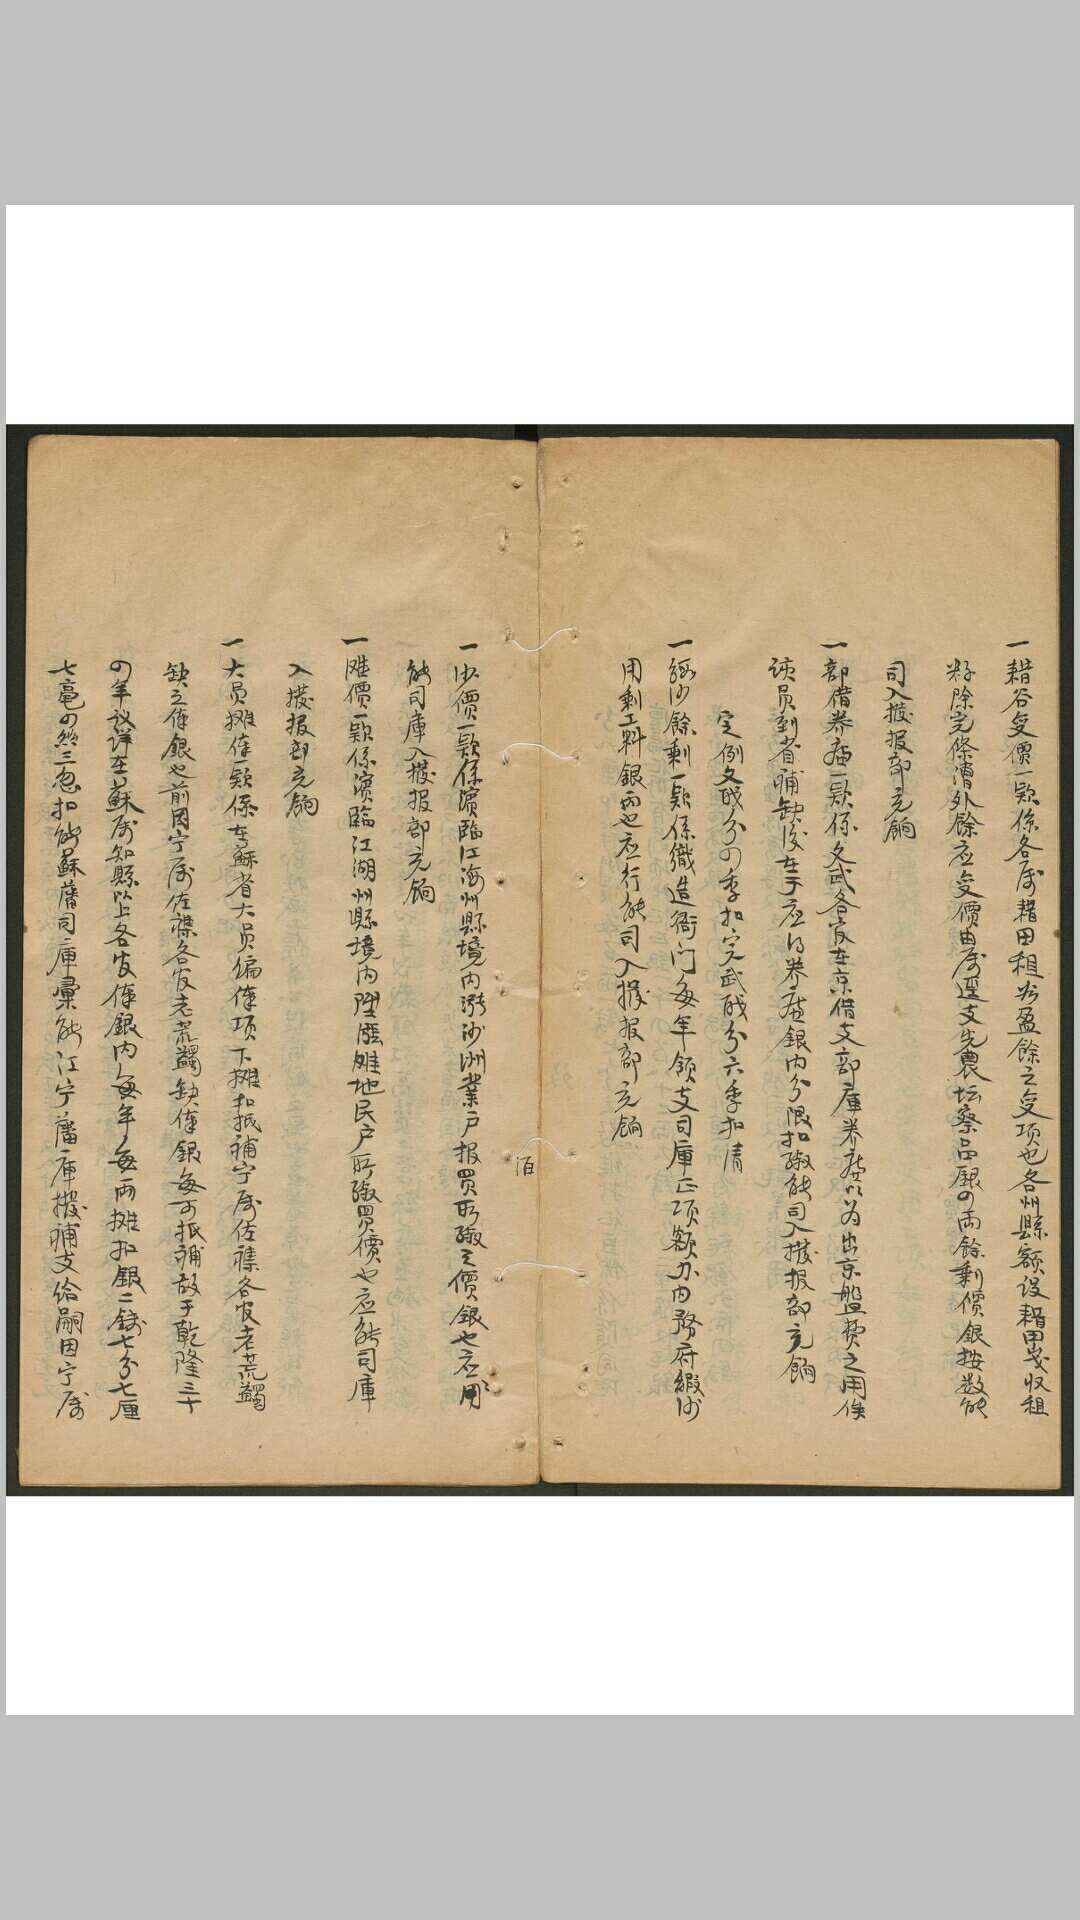 一耤谷变價一款係各属耤田租谷盈餘之变項也各州縣額设耤田岁收租
籽除完條漕外餘应变價由属逕支先農坛祭品銀四両餘剩價銀按数解
司入撥报部充餉
一部借养廉一款係文武各官在京借支部庫养廉以为出京盤费之用俟
该员到省補缺後在于应得养廉銀内分限扣缴解司入撥报部充餉
定例文職分四季扣完武職分六季扣清
一缎沙餘剩一款係織造衙门每年领支司庫正项額办内務府緞沙
用剩工料銀両也应行解司入撥报部充餉
一沙價一款係濱臨江海州縣境内漲沙洲業户报買所缴之價銀也应
解司庫入撥报部充餉
一滩價一款係濱臨江湖州縣境内涯滩地民户所缴買價也应解司庫
入撥报部充餉
一大员摊俸一款係蘇省大员编俸项下摊扣抵補宁属佐雜各官老荒蠲
缺之俸銀也前因宁属佐雜各官老荒蠲缺俸銀無可抵補故于乾隆三十
四年议详在蘇属知縣以上各官俸銀内每年每両摊扣銀二錢七分七厘
七毫四丝三忽扣解蘇藩司庫彙解江宁藩庫撥補支给嗣因宁属